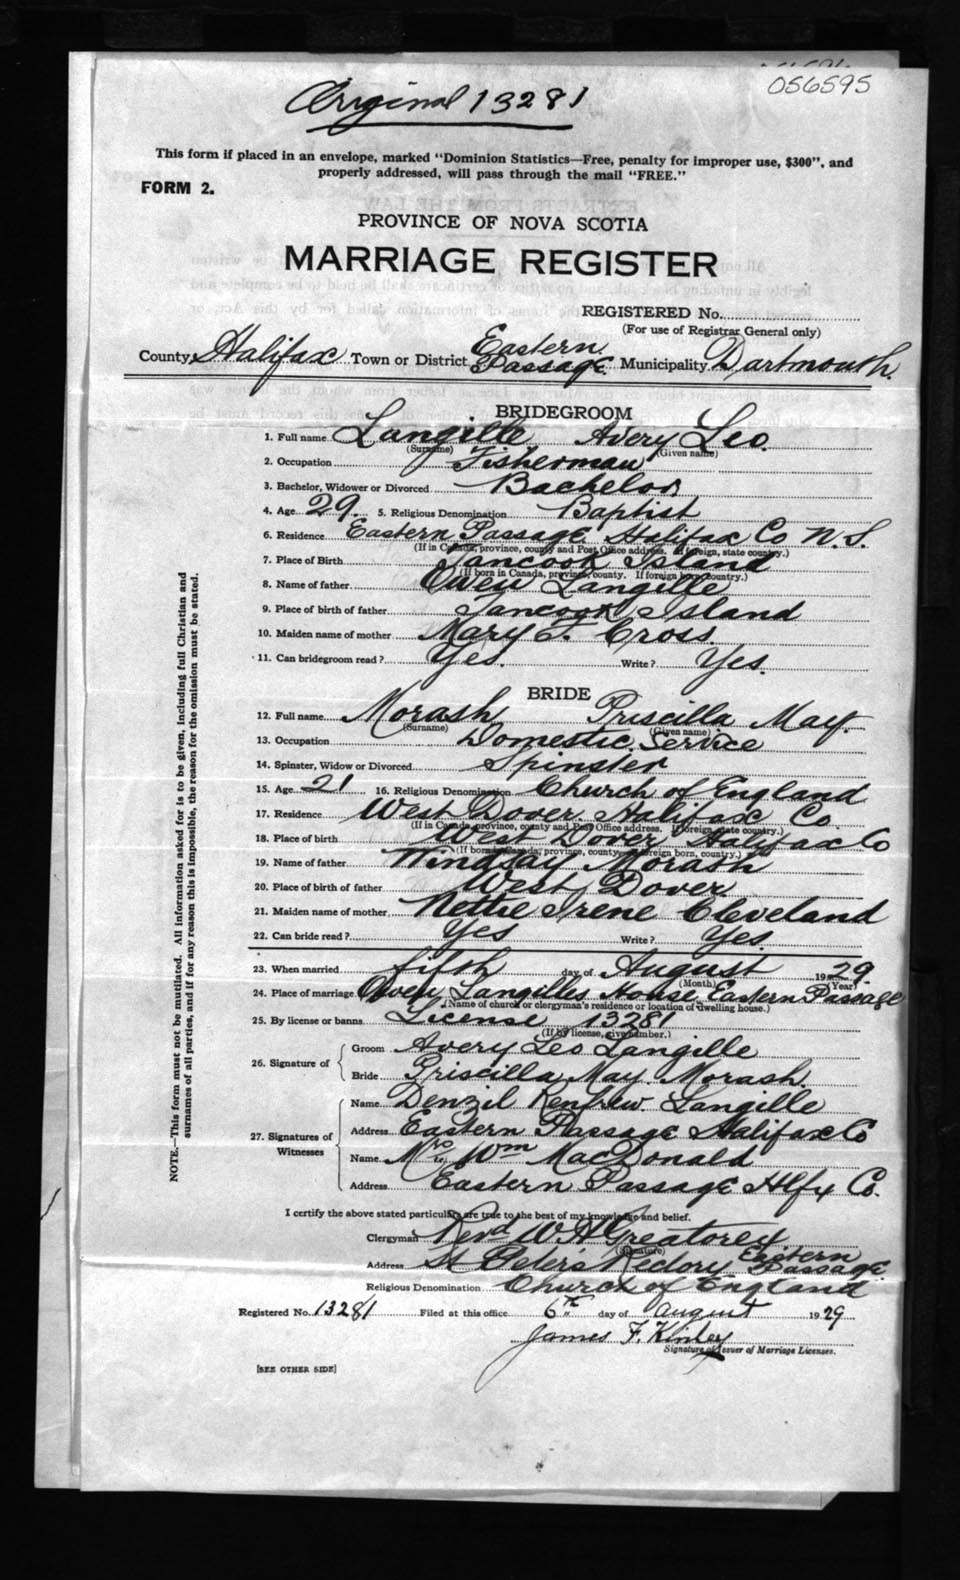 056595
Original 13281
This form if placed in an envelope, marked "Dominion Statistics—Free, penalty for improper use, $300", and
properly addressed, will pass through the mail "FREE."
FORM 2.
PROVINCE OF NOVA SCOTIA
MARRIAGE REGISTER
REGISTERED No.
(For use of Registrar General only)
County Halifax Town or District Eastern Passage Municipality Dartmouth.
BRIDEGROOM
1. Full name Langille Avery Leo.
(Surname) (Given name)
2. Occupation Fisherman
3. Bachelor, Widower or Divorced Bachelor
4. Age 29. 5. Religious Denomination Baptist
6. Residence Eastern Passage Halifax Co N.S.
(If in Canada, province, county and Post Office address. If foreign, state country.)
7. Place of Birth Tancook Island
(If born in Canada, province, county. If foreign born, country.)
8. Name of father Owen Langille
9. Place of birth of father Tancook Island
10. Maiden name of mother Mary J. Cross.
11. Can bridegroom read? Yes. Write? Yes.
BRIDE
12. Full name Morash Priscilla May.
(Surname) (Given name)
13. Occupation Domestic Service
14. Spinster, Widow or Divorced Spinster
15. Age 21 16. Religious Denomination Church of England
17. Residence West Dover. Halifax Co
(If in Canada, province, county and Post Office address. If foreign state country.)
18. Place of birth West Dover Halifax Co
(If born in Canada; province, county. If foreign born, country.)
19. Name of father Windsay Morash
20. Place of birth of father West Dover
21. Maiden name of mother Nettie Irene Cleveland
22. Can bride read? Yes Write? Yes.
23. When married fifth day of August 1929.
(Month) (Year)
24. Place of marriage Owen Langilles House Eastern Passage
(Name of church or clergyman's residence or location of dwelling house.)
25. By license or banns License 13281
(If by license, give number.)
26. Signature of Groom Avery Leo Langille
Bride Priscilla May Morash.
27. Signatures of Witnesses Name Denzil Renfrew Langille
Address Eastern Passage Halifax Co
Name Mrs. Wm MacDonald
Address Eastern Passage Hlfx Co.
I certify the above stated particulars are true to the best of my knowledge and belief.
Clergyman Revd W. H. Greatorey
(Signature)
Address St Peter's Rectory Eastern Passage
Religious Denomination Church of England
Registered No. 13281 Filed at this office 6th day of August 1929
James F. Kinley
Signature of Issuer of Marriage Licenses.
[SEE OTHER SIDE]
NOTE.—This form must not be mutilated. All information asked for is to be given, including full Christian and
surnames of all parties, and if for any reason this is impossible, the reason for the omission must be stated.